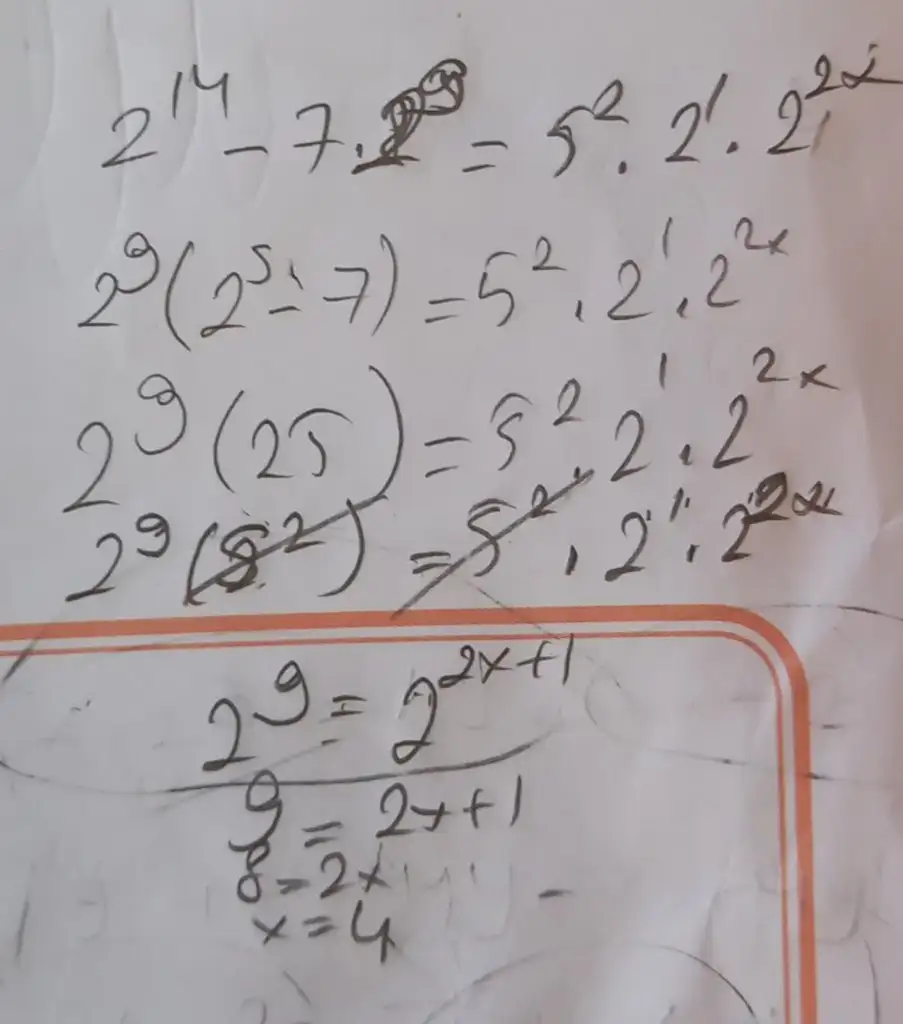 2¹⁴ - 7 . 2⁹ = 5² . 2¹ . 2²ˣ
2⁹ (2⁵ - 7) = 5² . 2¹ . 2²ˣ
2⁹ (25) = 5² . 2¹ . 2²ˣ
2⁹ (5²) = 5² . 2¹ . 2²ˣ
2⁹ = 2²ˣ⁺¹
9 = 2x+1
8 = 2x
x = 4